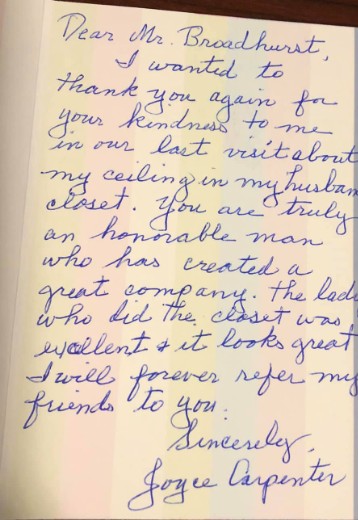 Dear Mr. Broadhurst,
I wanted to
thank you again for
your kindness to me
in our last visit about
my ceiling in my husban
closet. You are truly
an honorable man
who has created a
great company. The lad
who did the closet was
excellent & it looks great
I will forever refer my
friends to you.
Sincerely,
Joyce Carpenter